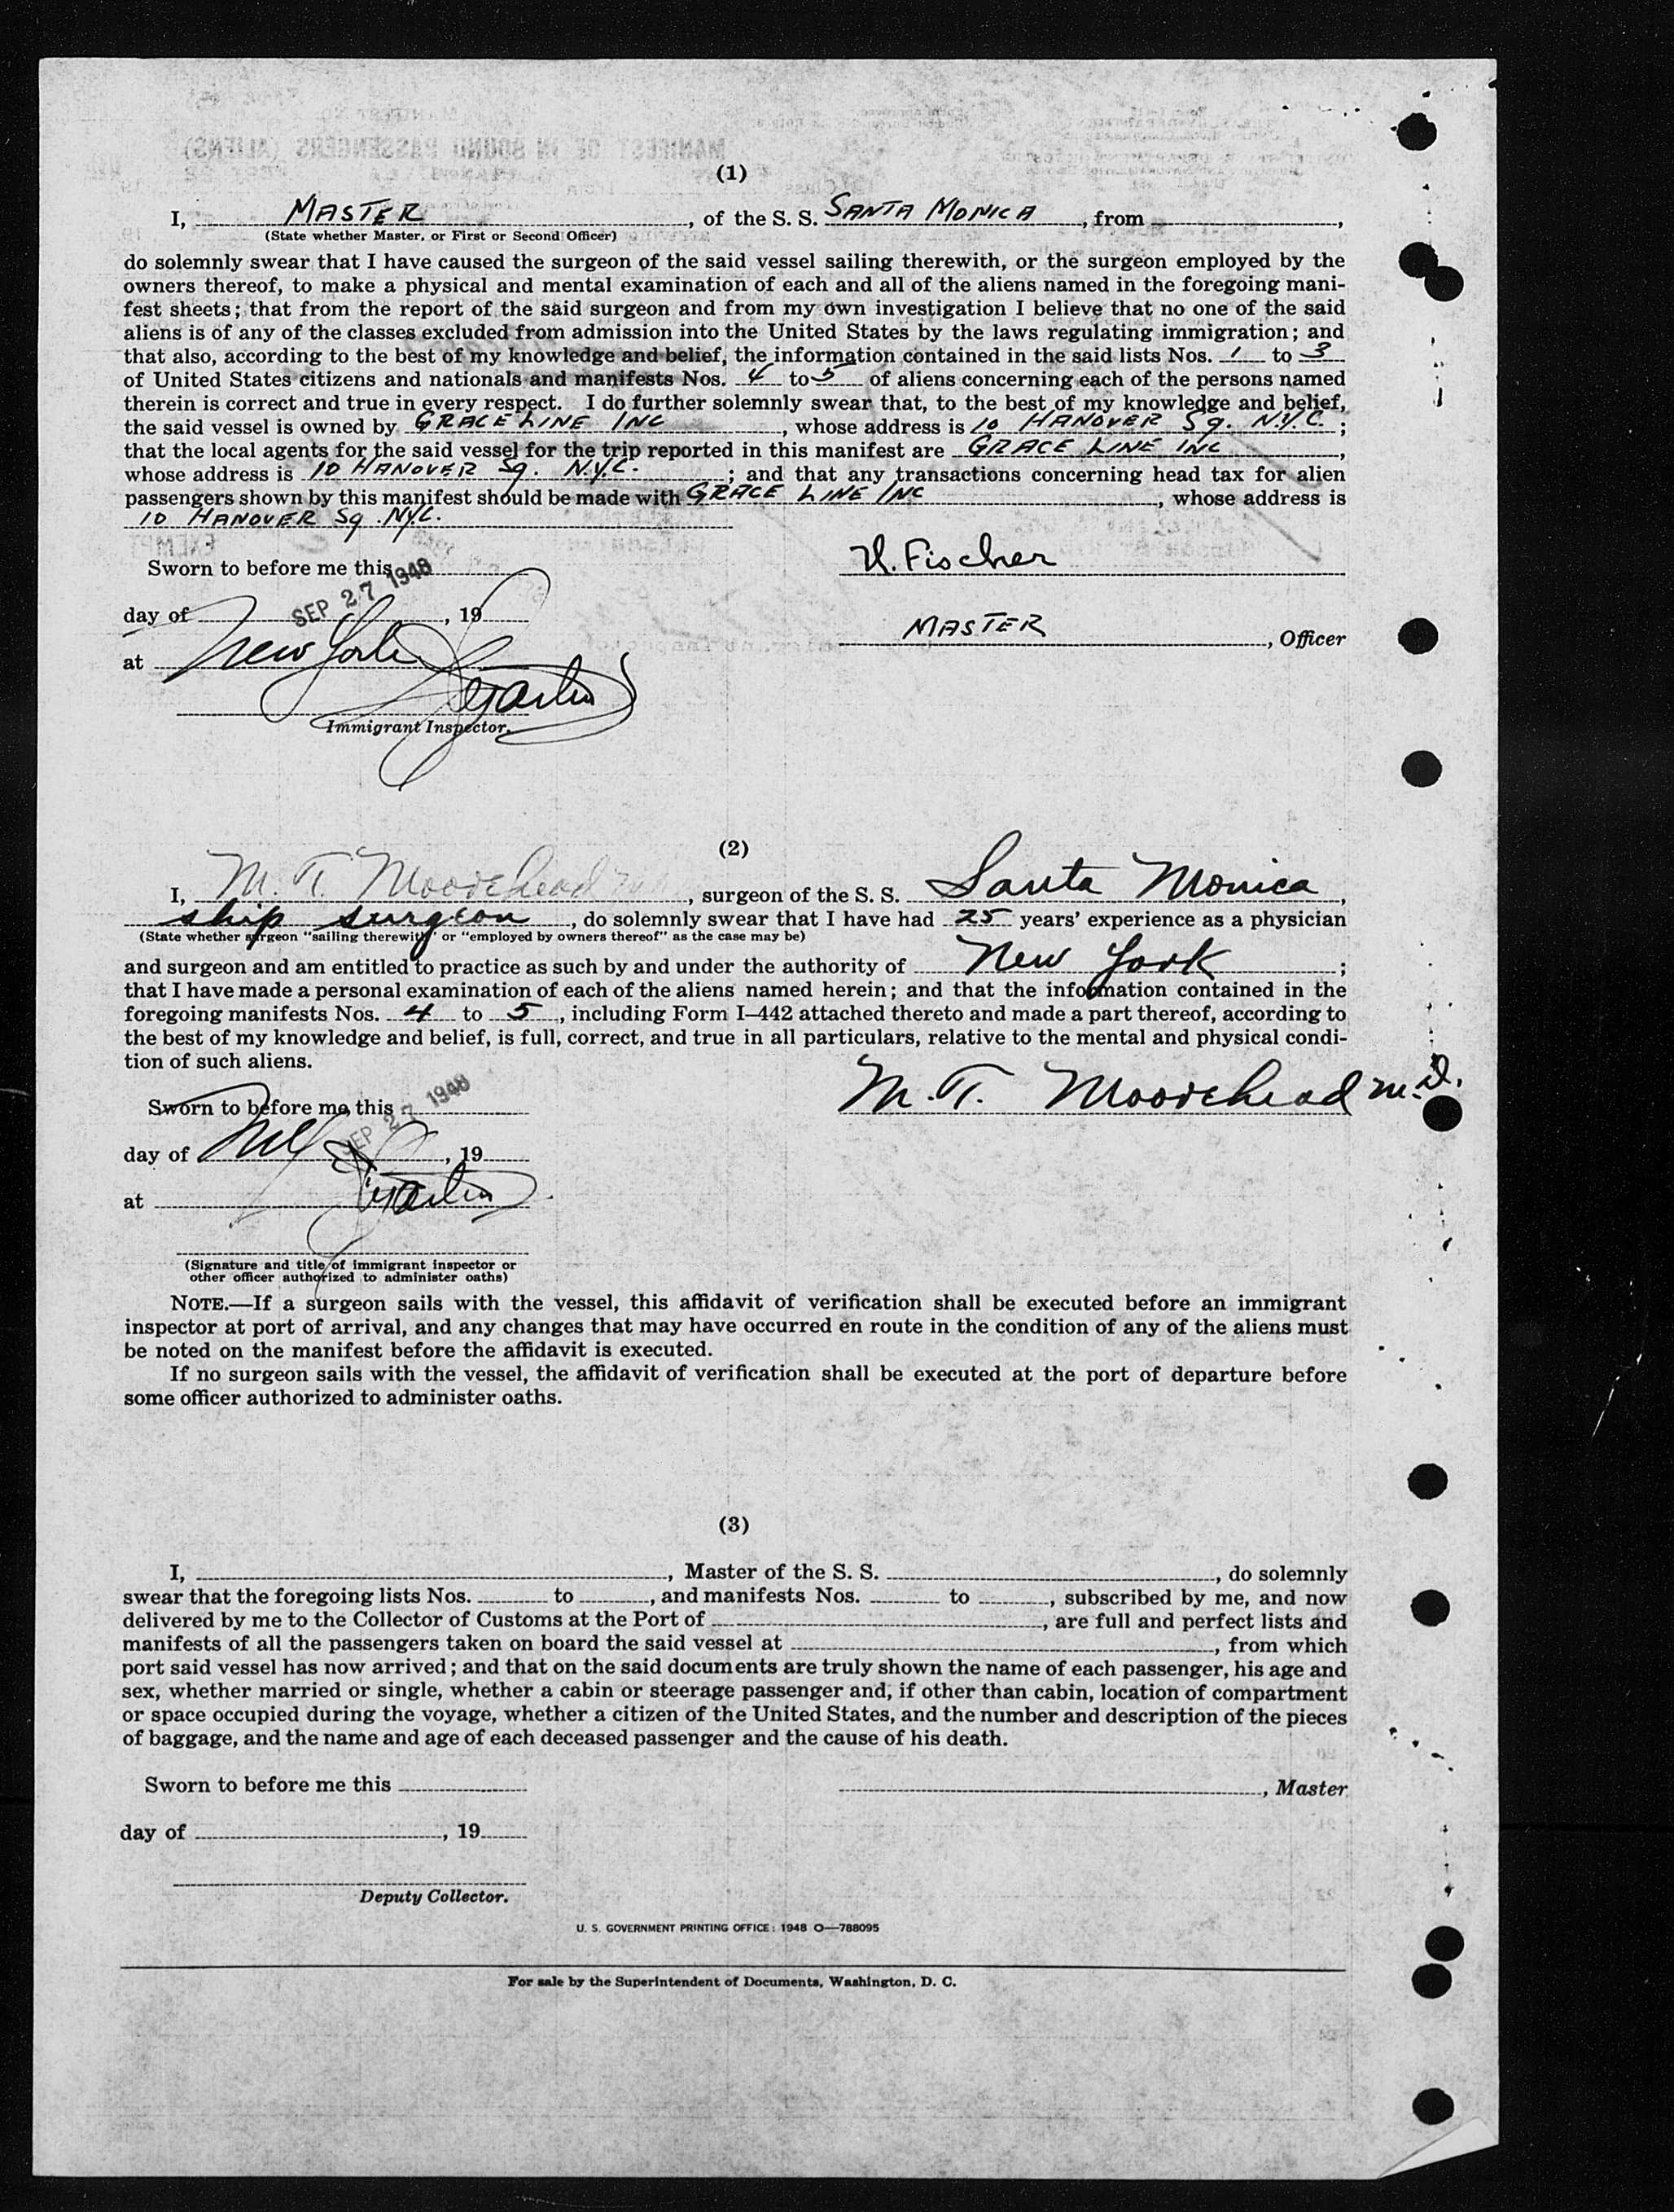 (1)
I, MASTER, of the S. S. SANTA MONICA, from ,
(State whether Master, or First or Second Officer)
do solemnly swear that I have caused the surgeon of the said vessel sailing therewith, or the surgeon employed by the
owners thereof, to make a physical and mental examination of each and all of the aliens named in the foregoing mani-
fest sheets; that from the report of the said surgeon and from my own investigation I believe that no one of the said
aliens is of any of the classes excluded from admission into the United States by the laws regulating immigration; and
that also, according to the best of my knowledge and belief, the information contained in the said lists Nos. 1 to 3
of United States citizens and nationals and manifests Nos. 4 to 5 of aliens concerning each of the persons named
therein is correct and true in every respect. I do further solemnly swear that, to the best of my knowledge and belief,
the said vessel is owned by GRACE LINE INC, whose address is 10 HANOVER Sq. N.Y.C. ;
that the local agents for the said vessel for the trip reported in this manifest are GRACE LINE INC,
whose address is 10 HANOVER Sq. N.Y.C. ; and that any transactions concerning head tax for alien
passengers shown by this manifest should be made with GRACE LINE INC, whose address is
10 HANOVER Sq N.Y.C.
Sworn to before me this
H. Fischer
SEP 27 1948
day of , 19
MASTER, Officer
at New York
Immigrant Inspector.
(2)
I, M. T. Moorehead, surgeon of the S. S. Santa Monica,
ship surgeon, do solemnly swear that I have had 25 years' experience as a physician
(State whether surgeon "sailing therewith" or "employed by owners thereof" as the case may be)
and surgeon and am entitled to practice as such by and under the authority of New York ;
that I have made a personal examination of each of the aliens named herein; and that the information contained in the
foregoing manifests Nos. 4 to 5, including Form I–442 attached thereto and made a part thereof, according to
the best of my knowledge and belief, is full, correct, and true in all particulars, relative to the mental and physical condi-
tion of such aliens.
M. T. Moorehead M.D.
Sworn to before me this
SEP 27 1948
day of , 19
at
(Signature and title of immigrant inspector or
other officer authorized to administer oaths)
NOTE.—If a surgeon sails with the vessel, this affidavit of verification shall be executed before an immigrant
inspector at port of arrival, and any changes that may have occurred en route in the condition of any of the aliens must
be noted on the manifest before the affidavit is executed.
If no surgeon sails with the vessel, the affidavit of verification shall be executed at the port of departure before
some officer authorized to administer oaths.
(3)
I, , Master of the S. S. , do solemnly
swear that the foregoing lists Nos. to , and manifests Nos. to , subscribed by me, and now
delivered by me to the Collector of Customs at the Port of , are full and perfect lists and
manifests of all the passengers taken on board the said vessel at , from which
port said vessel has now arrived; and that on the said documents are truly shown the name of each passenger, his age and
sex, whether married or single, whether a cabin or steerage passenger and, if other than cabin, location of compartment
or space occupied during the voyage, whether a citizen of the United States, and the number and description of the pieces
of baggage, and the name and age of each deceased passenger and the cause of his death.
Sworn to before me this
, Master
day of , 19
Deputy Collector.
U. S. GOVERNMENT PRINTING OFFICE: 1948 O—788095
For sale by the Superintendent of Documents, Washington, D. C.